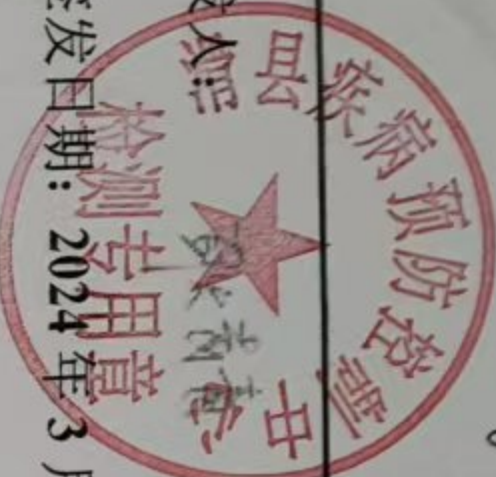 县疾病预防控制中心
检测专用章
发人:
签发日期: 2024 年 3 月